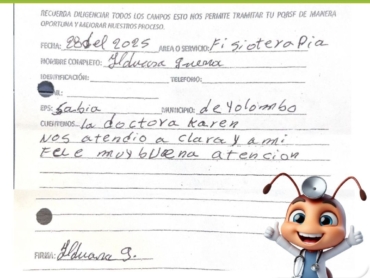 RECUERDA DILIGENCIAR TODOS LOS CAMPOS ESTO NOS PERMITE TRAMITAR TU PQRSF DE MANERA
OPORTUNA Y MEJORAR NUESTROS PROCESO.
FECHA: 28 del 2025 AREA O SERVICIO: Fisioterapia
NOMBRE COMPLETO: Ilduara
IDENTIFICACIÓN: TELEFONO:
EPS: Sabia MUNICIPIO: de Yolombo
CUENTENOS: la doctora Karen
Nos atendio a Clara y a mi
Fele muy buena atencion
FIRMA: Ilduara G.